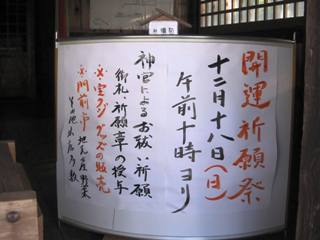 開運祈願祭
十二月十八日(日)
午前十時ヨリ
神官によるお祓い・祈願
御札・祈願章の授与
※宝クジグッズの販売
※門前市 地元の産野菜